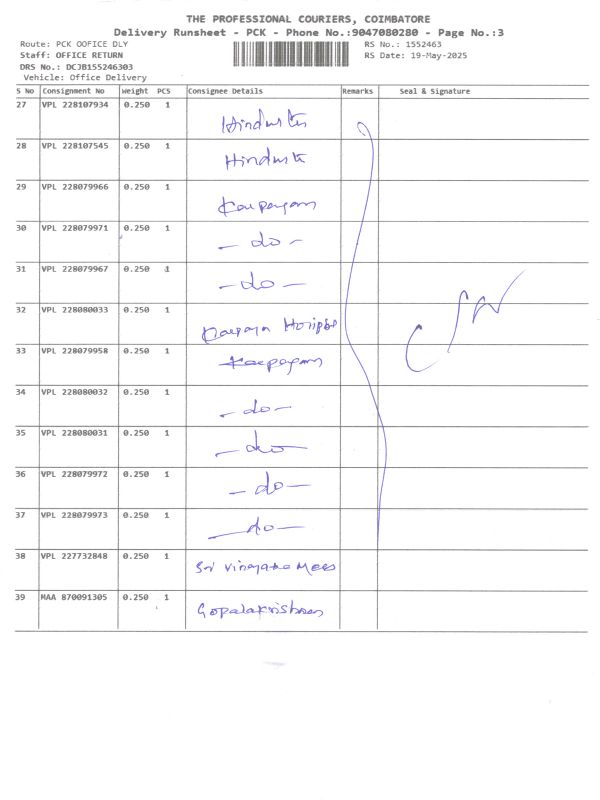 THE PROFESSIONAL COURIERS, COIMBATORE
Delivery Runsheet - PCK - Phone No.:9047080280 - Page No.:3
Route: PCK OOFICE DLY RS No.: 1552463
Staff: OFFICE RETURN RS Date: 19-May-2025
DRS No.: DCJB155246303
Vehicle: Office Delivery
S No Consignment No Weight PCS Consignee Details Remarks Seal & Signature
27 VPL 228107934 0.250 1
28 VPL 228107545 0.250 1
29 VPL 228079966 0.250 1 Karpagam
30 VPL 228079971 0.250 1 - do -
31 VPL 228079967 0.250 1 - do -
32 VPL 228080033 0.250 1
33 VPL 228079958 0.250 1 Karpagam
34 VPL 228080032 0.250 1 - do -
35 VPL 228080031 0.250 1 - do -
36 VPL 228079972 0.250 1 - do -
37 VPL 228079973 0.250 1 - do -
38 VPL 227732848 0.250 1 Sri Vinayaka Mess
39 MAA 870091305 0.250 1 Gopalakrishnan